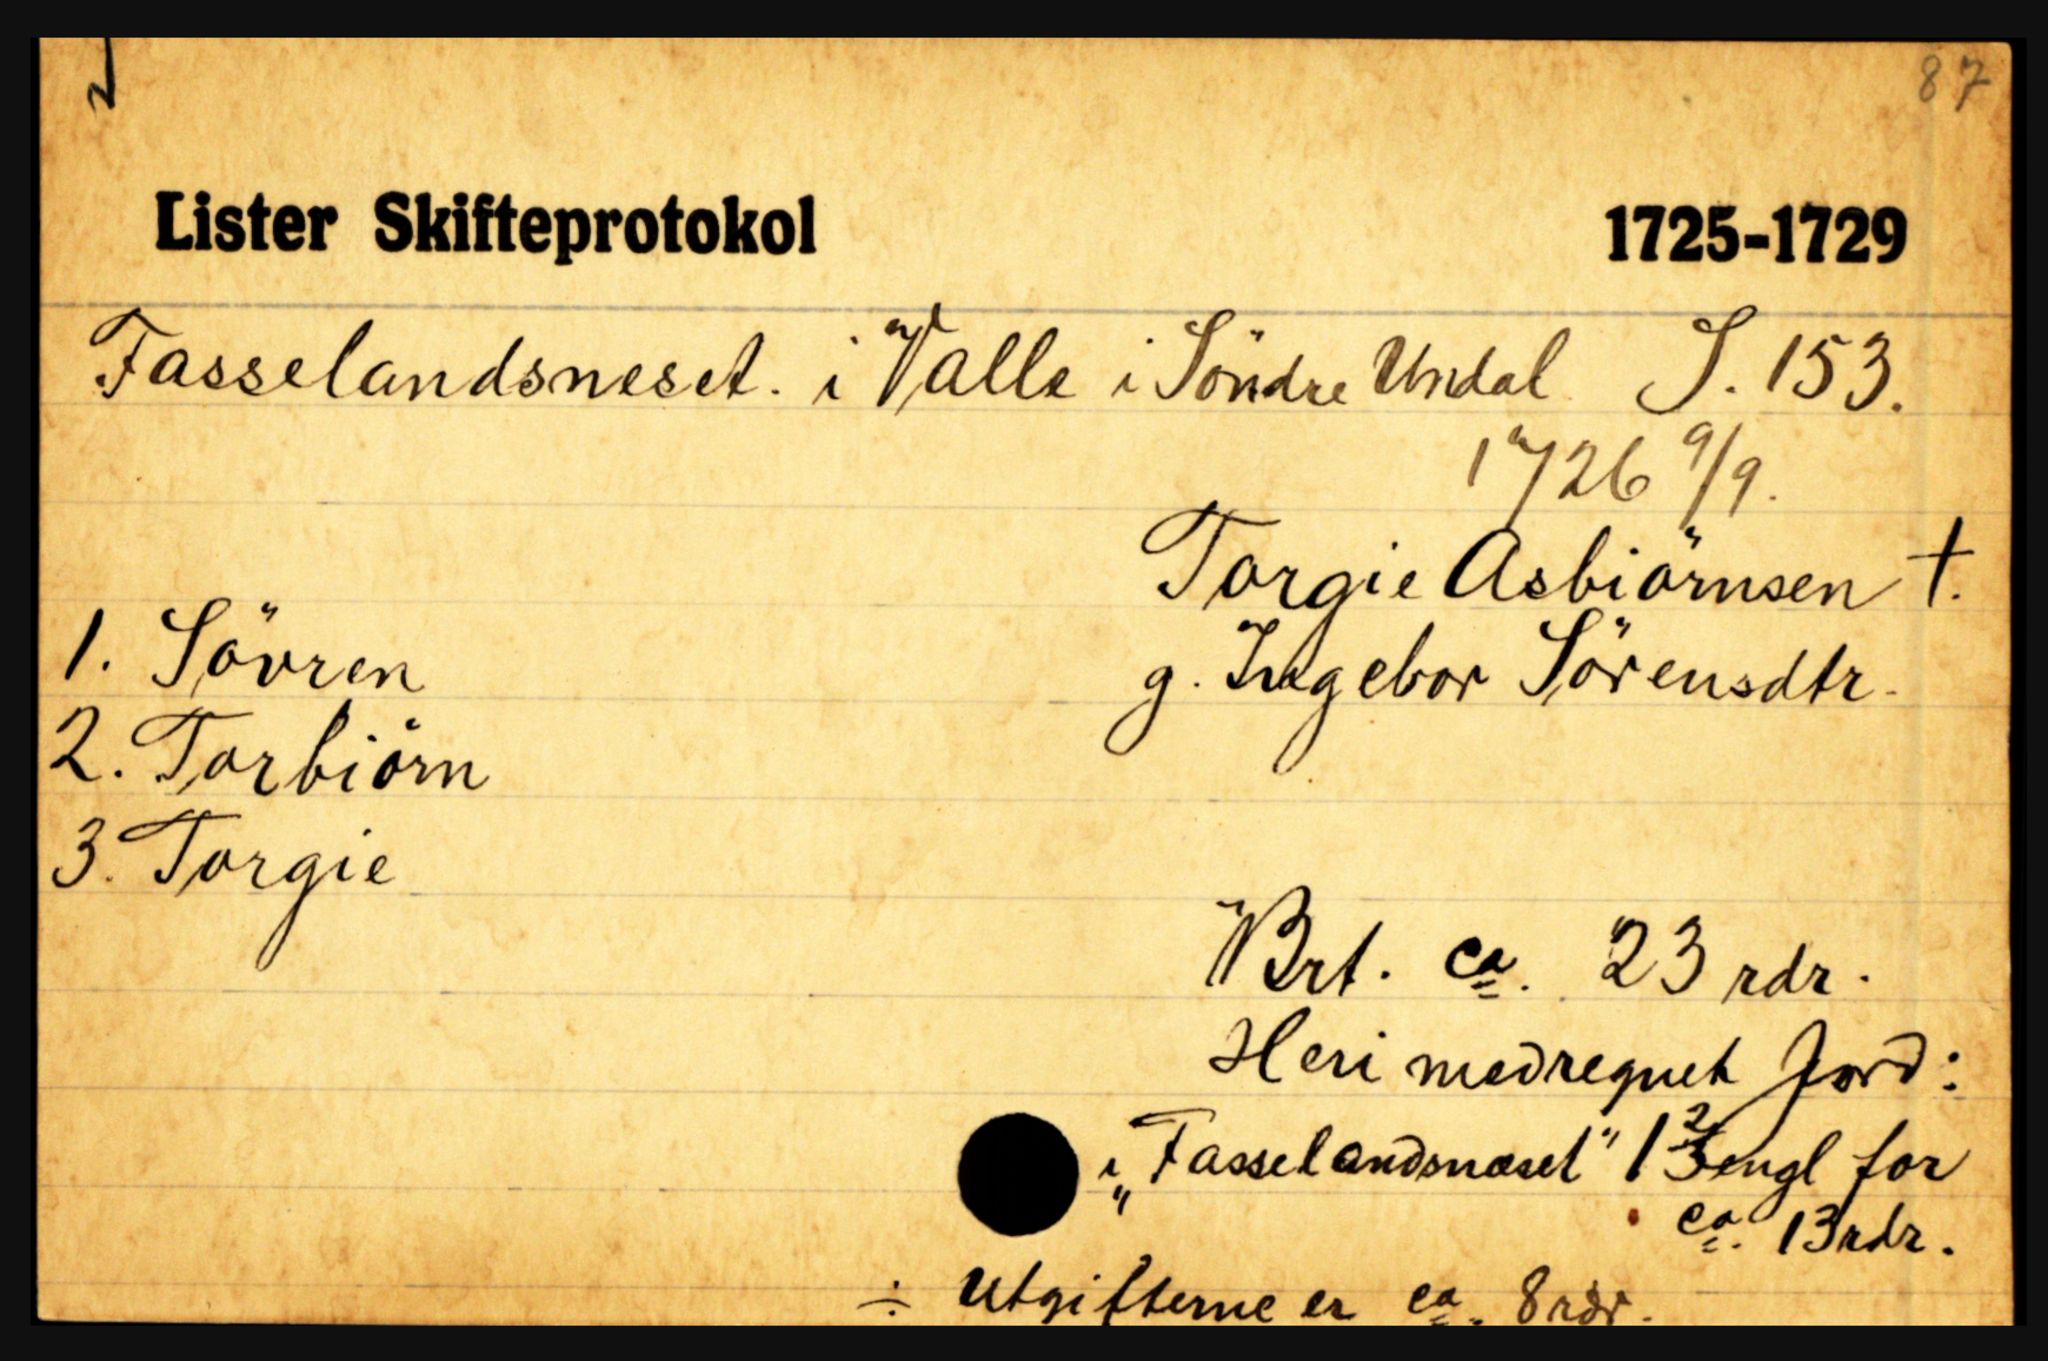 87
Lister Skifteprotokol 1725-1729
Fasselandsneset. i Valle i Söndre Undal S. 153.
1726 9/9.
Torgie Asbiörnsen †.
1. Sövren
g. Ingebor Sörensdtr.
2. Torbiörn
3. Torgie
Brt. ca. 23 rdr.
Heri medregnet Jord:
i „Fasselandsnæset" 1 2/3 engl for
ca. 13 rdr.
÷ Utgifterne er ca. 8 rdr.